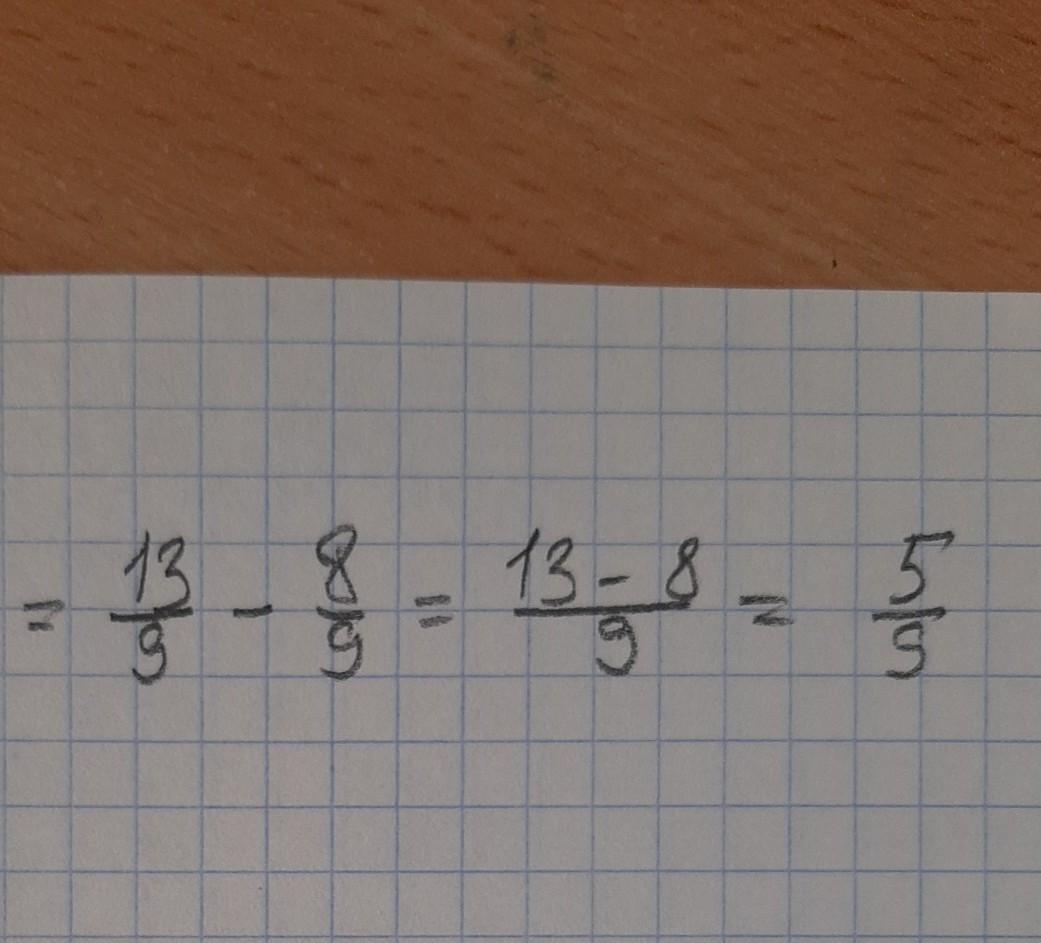 = 13/9 - 8/9 = 13 - 8/9 = 5/9